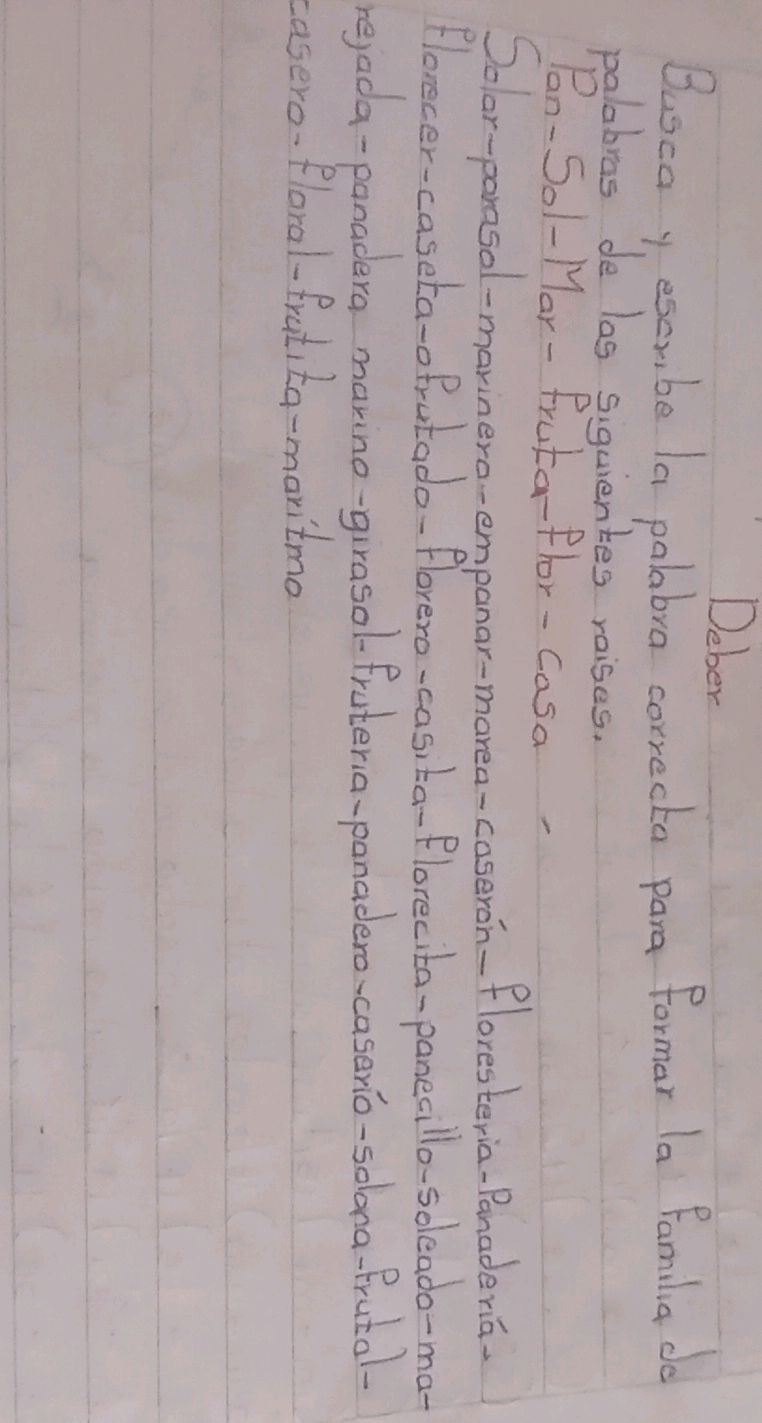 Deber
Busca y escribe la palabra correcta para formar la familia de
palabras de las siguientes raises.
Pan-Sol-Mar-fruta-flor-casa
Solar-parasol-marinero-empanar-marea-caserón-floresteria-Panadería-
florecer-caseta-afrutado-florero-casita-florecita-panecillo-soleado-ma-
rejada-panadera marino-girasol-fruteria-panadero-caserió-solana-frutal-
casero-floral-frutita-marítmo